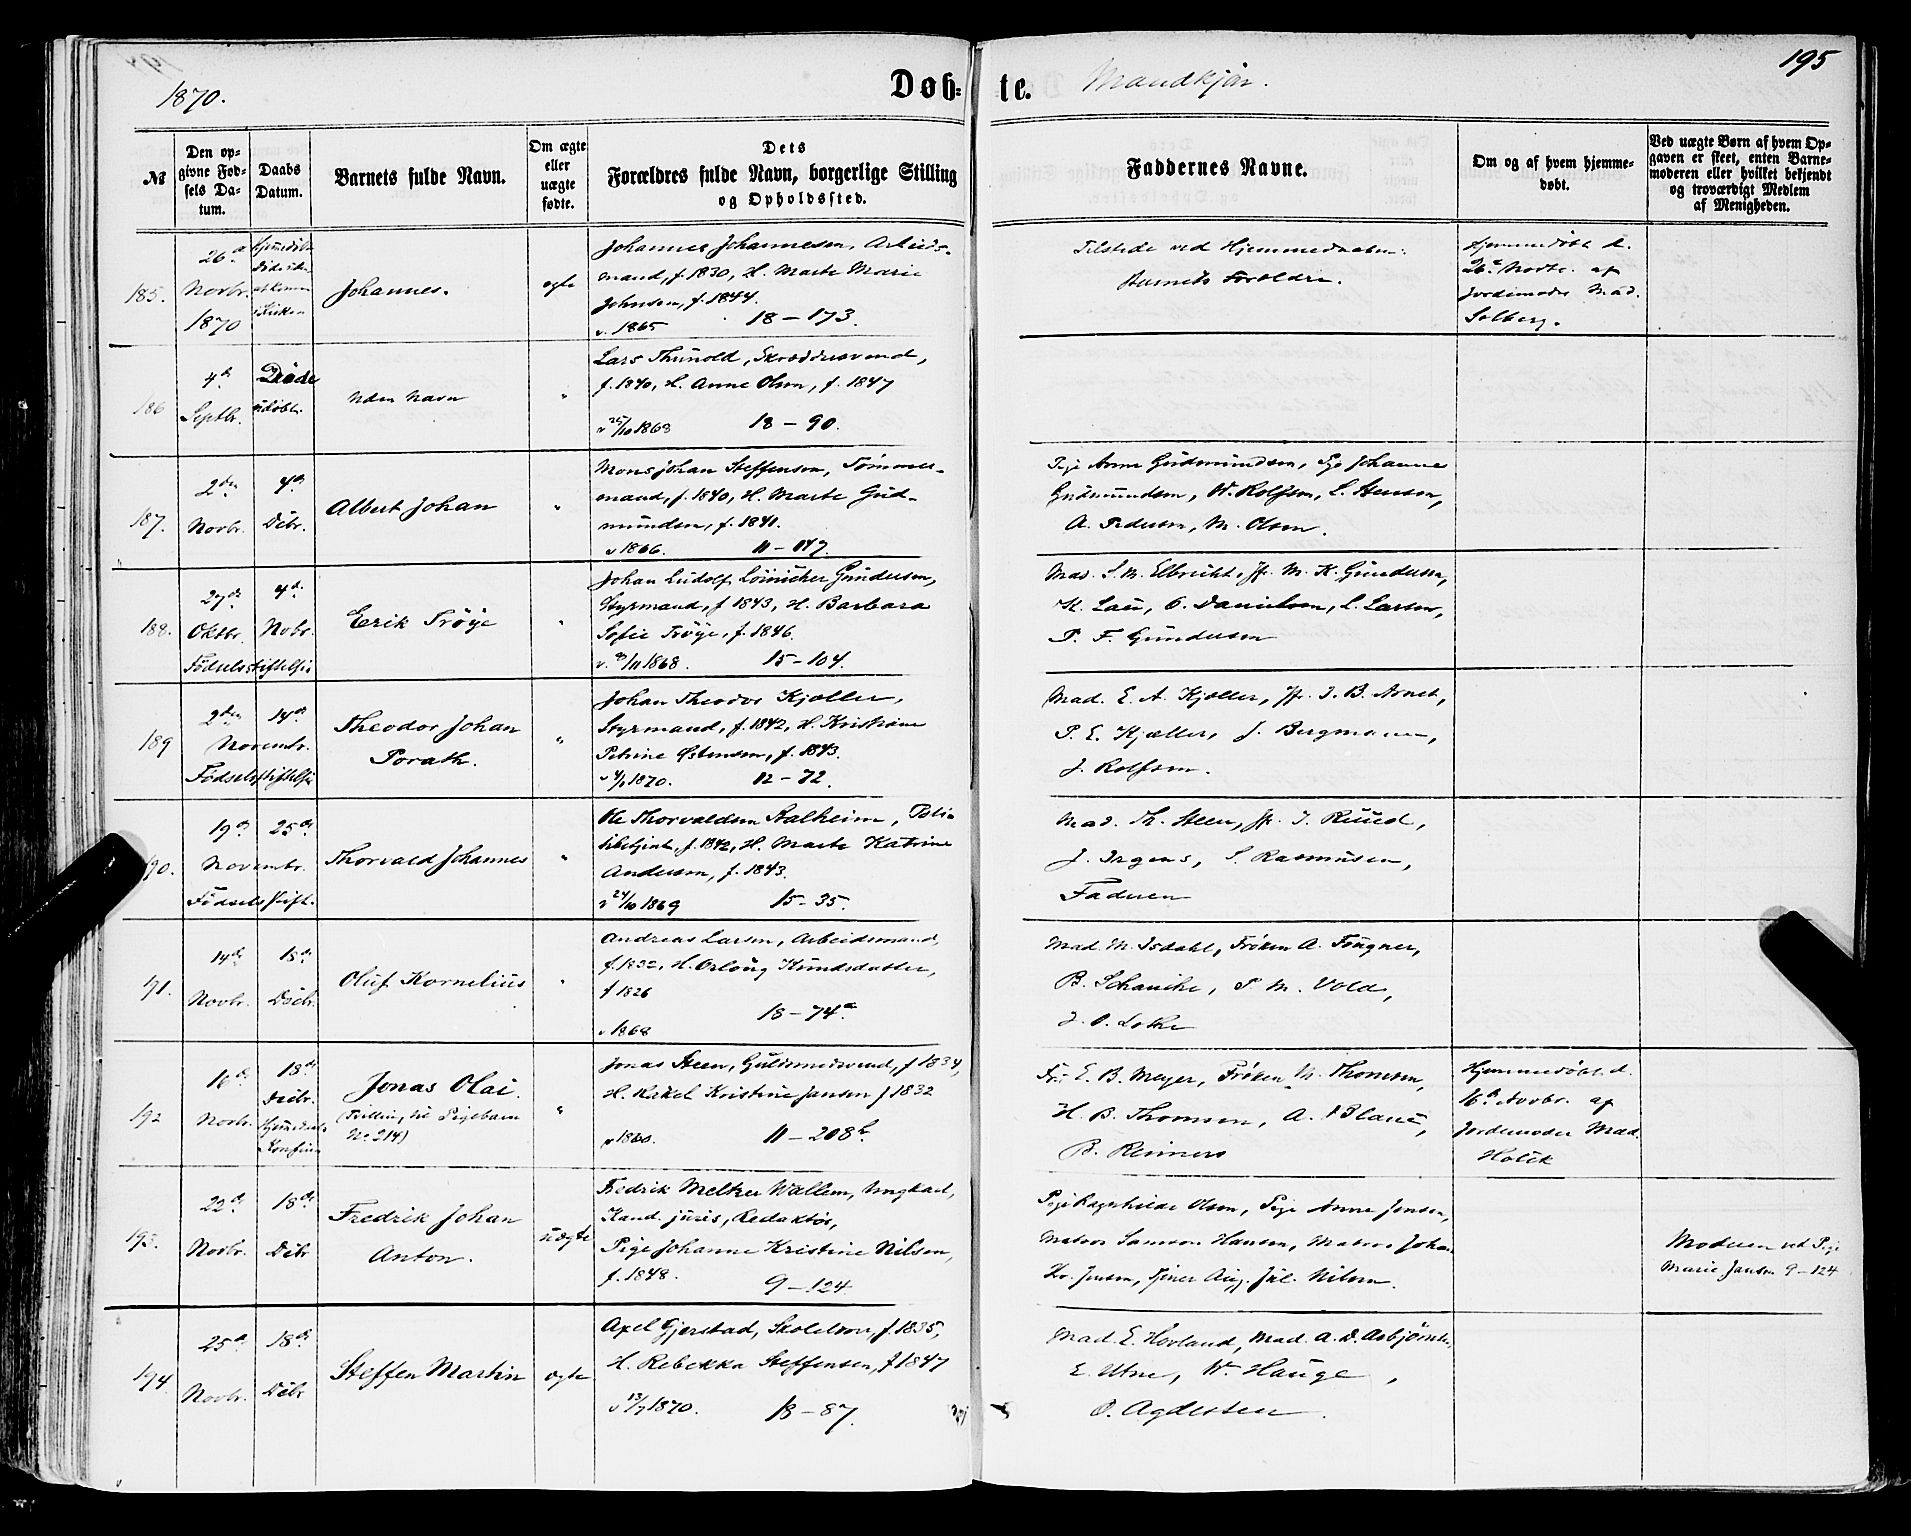 195
1870.
Døb-
te. Mandkjøn.
№
Den op-
givne Fød-
sels Da-
tum.
Daabs
Datum.
Barnets fulde Navn.
Om ægte
eller
uægte
fødte.
Dets
Forældres fulde Navn, borgerlige Stilling
og Opholdssted.
Faddernes Navne.
Om og af hvem hjemme-
døbt.
Ved uægte Børn af hvem Op-
gaven er skeet, enten Barne-
moderen eller hvilket bekjendt
og troværdigt Medlem
af Menigheden.
185.
26de
Novbr.
1870
Johannes.
ægte
Johannes Johannesen, Arbeids-
mand, f. 1830, H. Marte Marie
Johnsen, f. 1844.
v. 1865 18-173.
Tilstede ved Hjemmedaaben:
Barnets Forældre.
Hjemmedøbt d.
26de Novbr. af
Jordemoder Mad.
Solberg.
186
4de
Septbr.
Døde
udøbt.
Uden Navn
"
Lars Thunold, Skræddersvend,
f. 1840, H. Anne Olsen, f. 1847
18-90.
187.
2den
Novbr.
4de
Debr.
Albert Johan
"
Mons Johan Steffensen, Tømmer-
mand, f. 1840, H. Marte Gud-
mundsen, f. 1841.
v 1866.
Pige Anna Gudmundsen, Pige Johanne
Gudmundsen, W. Rolfsen, L. Stensen,
A. Pedersen, M. Olsen.
188.
27de
Oktbr.
4de
Nobr.
Fødselsstiftelsen
Erik Trøye
"
Johan Ludolf Gundersen,
Styrmand, f 1843, H. Barbara
Sofie Trøye, f. 1846.
15-104.
Mad. S. M. Elbrucht, Jfr. M. K. Gundersen,
K. Lau, O. Danielsen, L. Larsen,
P. F. Gundersen
189
2den
14de
Novembr.
Fødselsstiftelsen
Theodor Johan
Porath.
"
Johan Theodor Kjøller,
Styrmand, f. 1842, H. Kristiane
Petrine Østensen, f. 1843.
12-72.
Mad. E. A. Kjøller, Jfr. I. B. Arnet,
P. E. Kjøller, J. Bergmann,
J. Rolfsen.
190.
19de
25de
Novembr.
Fødselsstift.
Thorvald Johannes
"
Ole Thorvaldsen Stalheim, Poli-
tibetjent, f. 1842, H. Marte Katrine
Andersen, f. 1843.
v 24/10 1869 15-35.
Mad. Th. Steen, Jfr. I. Ruud,
J. Irgens, S. Rasmusen,
Faderen
191.
14de
Novbr.
18de
Decbr.
Oluf Kornelius
"
Andreas Larsen, Arbeidsmand,
f. 1832, H. Orloug Knudsdatter,
f 1826
18-74a.
v 1868
Mad. M. Isdahl, Frøken A. Fougner,
B. Schancke, P. M. Vold,
J. O. Lothe
192
16de
Novbr.
18de
Decbr.
Jonas Olai.
(Tvilling, se Pigebarn
No 214)
"
Jonas Steen, Guldsmedsvend, f 1834,
H. Rakel Kristine Jansen f 1832
v 1860. 11-208b.
Fru E. B. Meyer, Frøken M. Thomsen,
H. B. Thomsen, A. Blauw,
B. Reimers
Hjemmedøbt d.
16de Novbr. af
Jordemoder Mad.
Holck
193.
22de
Novbr.
18de
Debr.
Fredrik Johan
Anton.
uægte
Fredrik Meltzer Wallem, Ungkarl,
Kand. juris, Redaktør,
Pige Johanne Kristine Nilsen,
f. 1848. 9-124
Pige Ragnhilde Olsen, Pige Anne Jensen,
Matros Samson Hansen, Matros Johan
Jensen, Tjener Aug. Jul. Nilsen.
Moderen ved Pige
Marie Jansen 9-124
194.
25de
Novbr.
18de
Debr.
Steffen Martin
ægte
Axel Gjerstad, Skolelærer, f. 1835,
H. Rebekka Steffensen, f 1847
v 13/7 1870. 18-87.
Mad E. Hovland, Mad. A. D. Asbjørnsen,
E. Utne, W. Hauge,
O. Agdesteen.